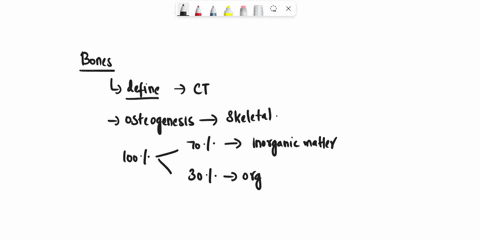 Bones
↳ define → CT
→ osteogenesis → skeletal.
70% → inorganic matter
100%
30% → org